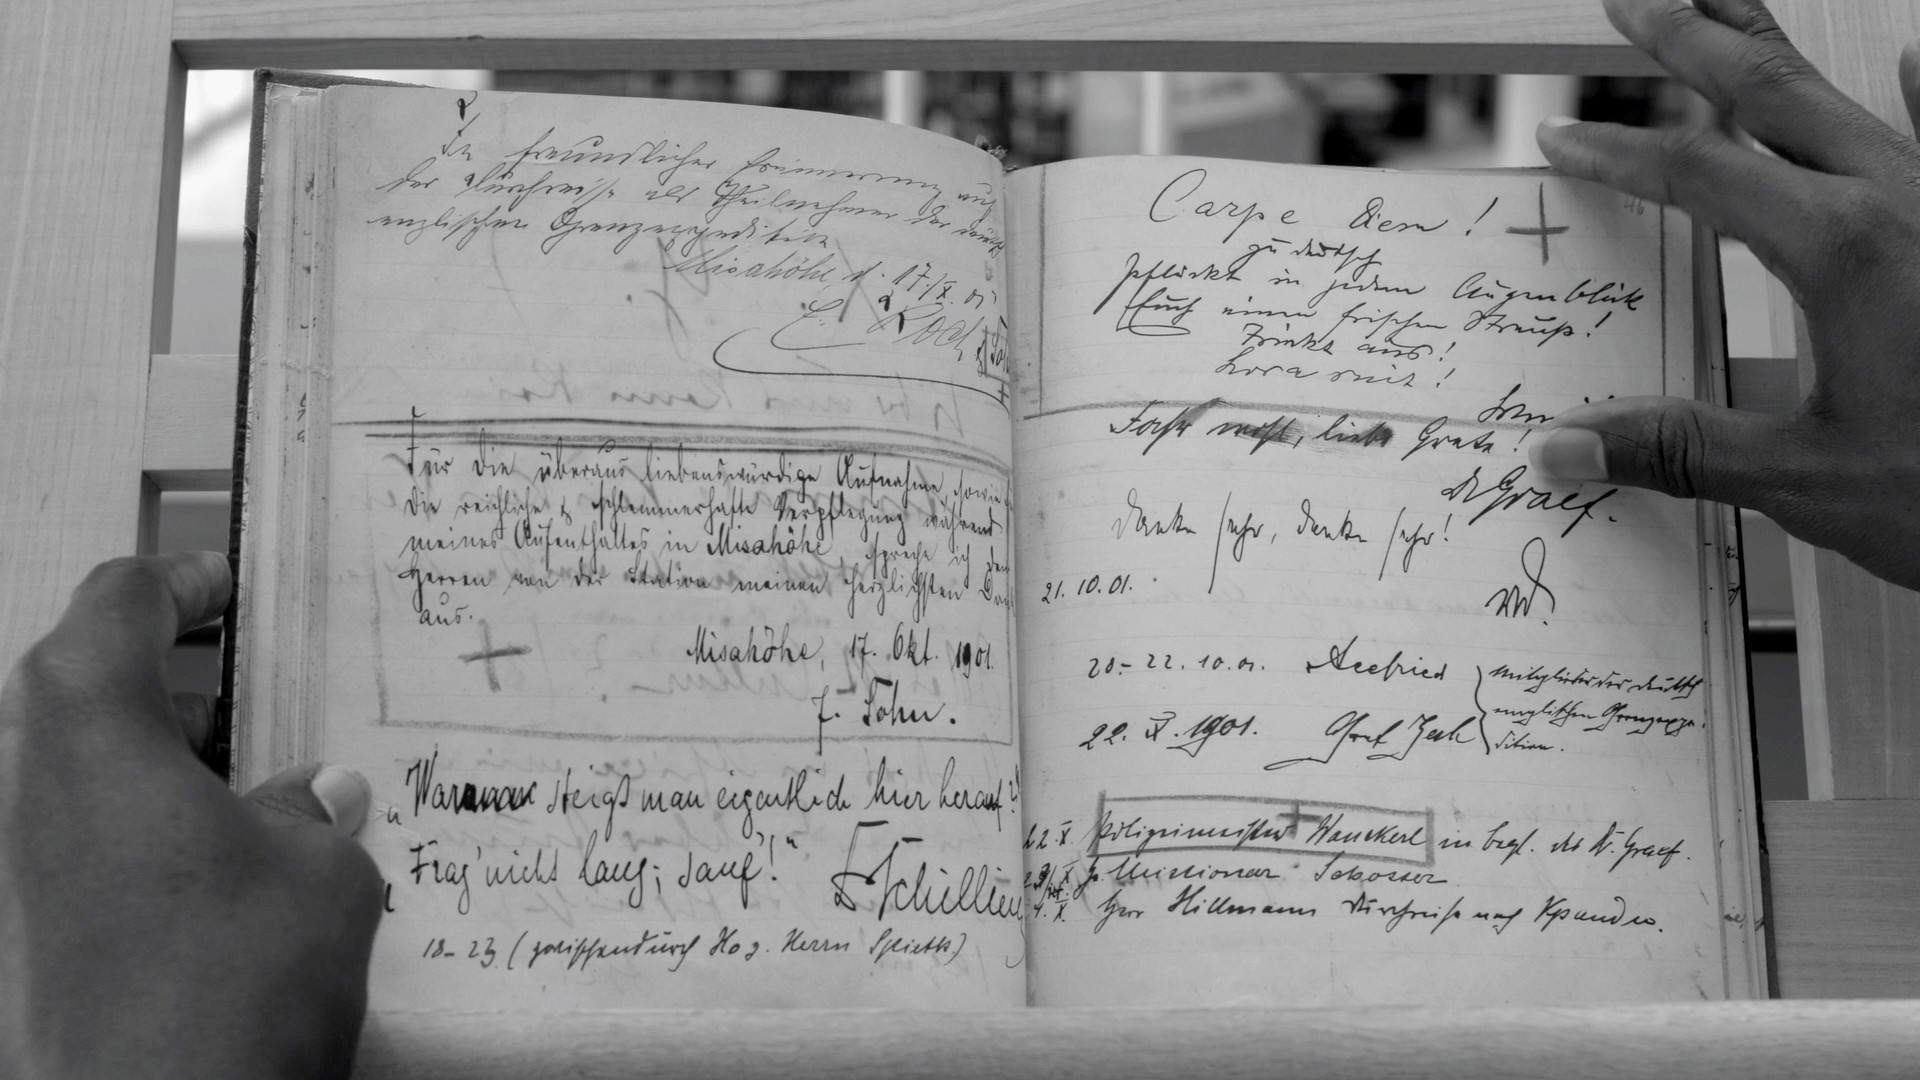 In freundlicher Erinnerung auf
der Durchreise als Theilnehmer der deutsch
englischen Grenzexpedition
Misahöhe, d. 17/X. 01
E. Koch
Für die überaus liebenswürdige Aufnahme, sowie
die reichliche & schlemmerhafte Verpflegung während
meines Aufenthaltes in Misahöhe, spreche ich den
Herren von der Station meinen herzlichsten Dank
aus.
Misahöhe, 17. Okt. 1901.
F. Sohn.
„Warum steigt man eigentlich hier herauf?
„Frag' nicht lang; sauf'!"
Schilling
18-23 (zwischendurch Ho z. Herrn Spieth)
46
Carpe diem!
zu deutsch
Pflückt in jedem Augenblick
Euch einen frischen Strauß!
Trinkt aus!
Lora mit!
Fahr wohl, liebe Grete!
Dr Graef.
Danke sehr, danke sehr!
21. 10. 01.
20-22. 10. 01. Seefried
22. X. 1901. Graf Zech
Mitglieder der deutsch
englischen Grenzexpe-
dition.
22. X. Polizeimeister Wanckerl in begl. des Dr. Graef.
Missionar Schosser
Herr Hillmann Durchreise nach Kpando.